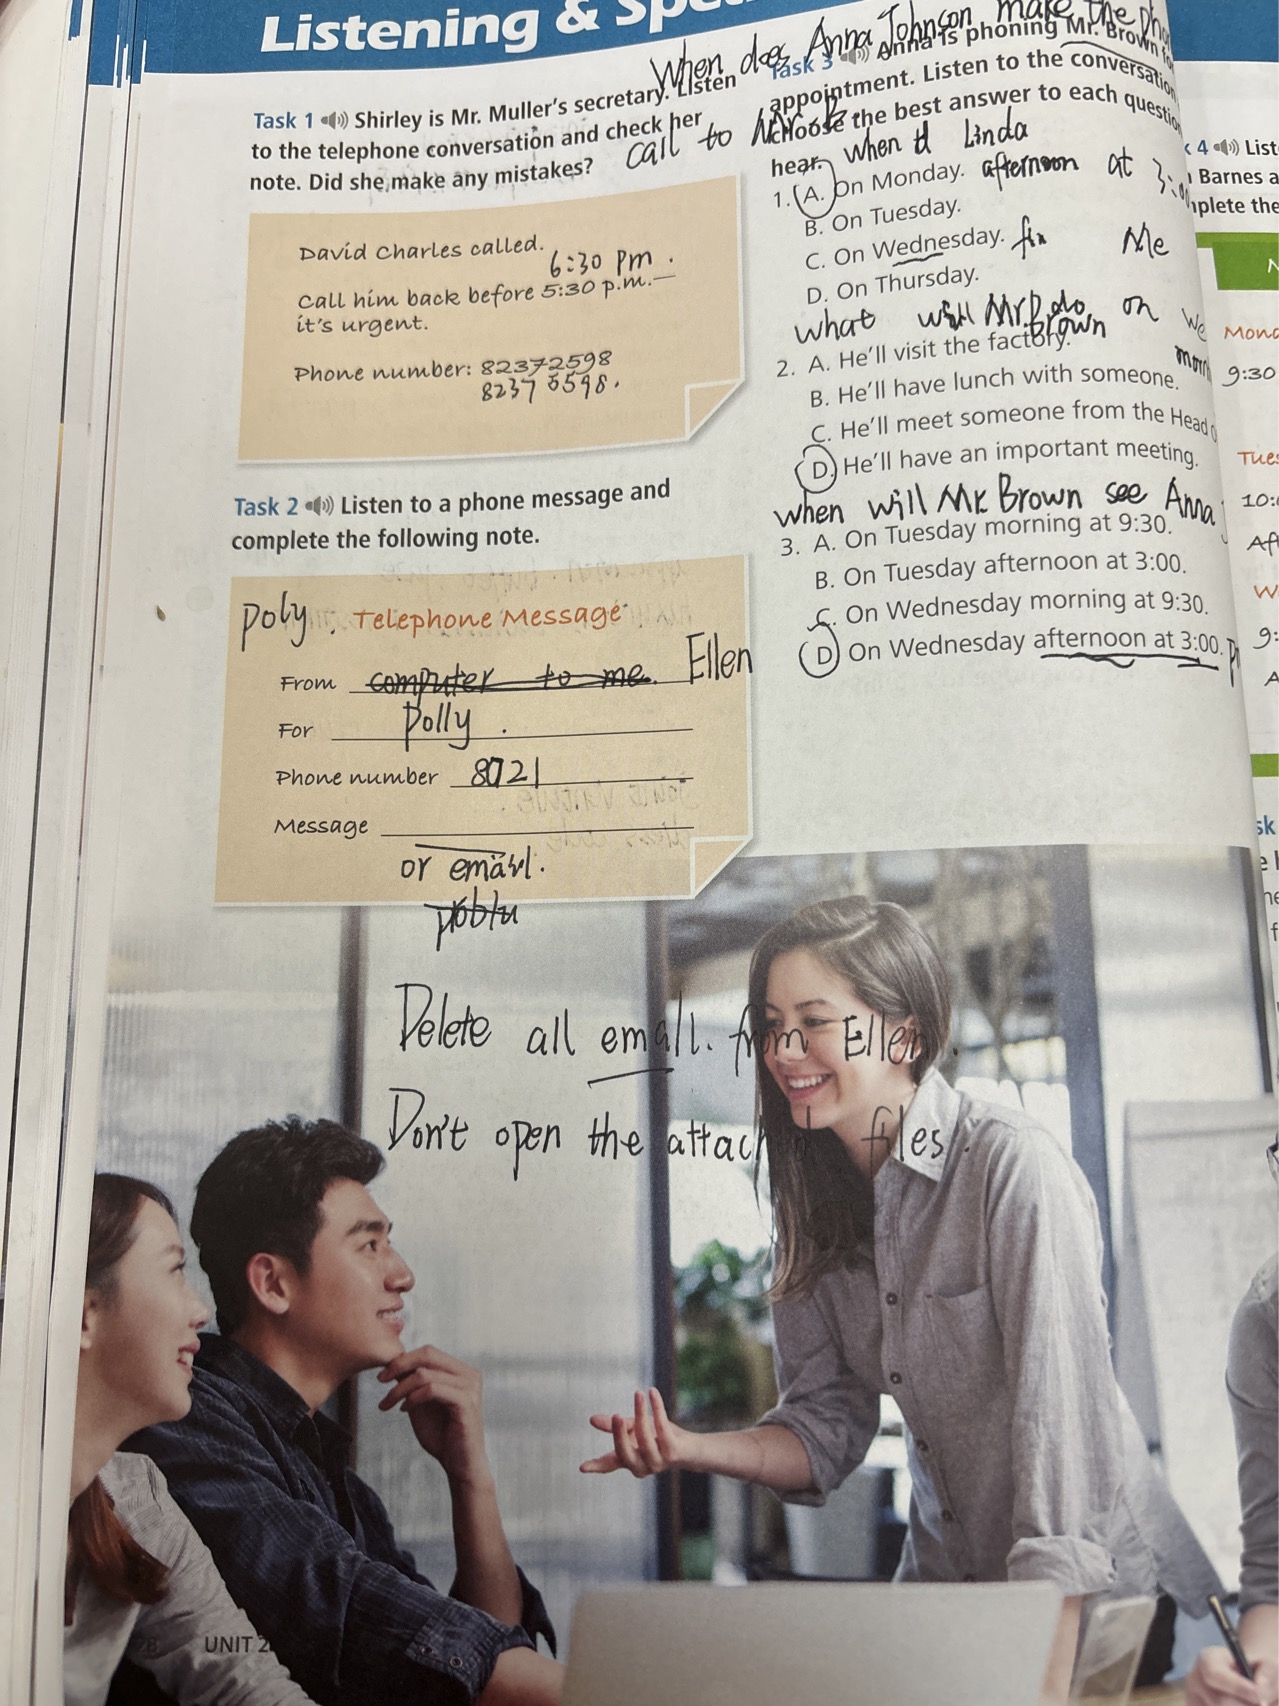 Listening &
When does Anna Johnson make the
call to
Task 1 Shirley is Mr. Muller's secretary. Listen
to the telephone conversation and check her
note. Did she make any mistakes?
David Charles called.
6:30 pm.
Call him back before 5:30 p.m.
it's urgent.
Phone number: 82372598
8237 5598.
Task 2 Listen to a phone message and
complete the following note.
poly. Telephone Message
From computer to me. Ellen
For Polly.
Phone number 8021
Message
or email.
Delete all email. from Ellen.
Don't open the attached files.
Task 3 Anna is phoning Mr. Brown for
appointment. Listen to the conversation
choose the best answer to each question
hear. when Linda
1. A. On Monday. afternoon at 3:00
B. On Tuesday.
C. On Wednesday. fix Me
D. On Thursday.
what will Mr. do on We
Brown
2. A. He'll visit the factory.
B. He'll have lunch with someone.
C. He'll meet someone from the Head
D. He'll have an important meeting.
when will Mr. Brown see Anna
3. A. On Tuesday morning at 9:30.
B. On Tuesday afternoon at 3:00.
C. On Wednesday morning at 9:30.
D. On Wednesday afternoon at 3:00.
4 List
Barnes a
plete the
Mond
9:30
Tues
10:
Af
W
9:
A
sk
UNIT 2